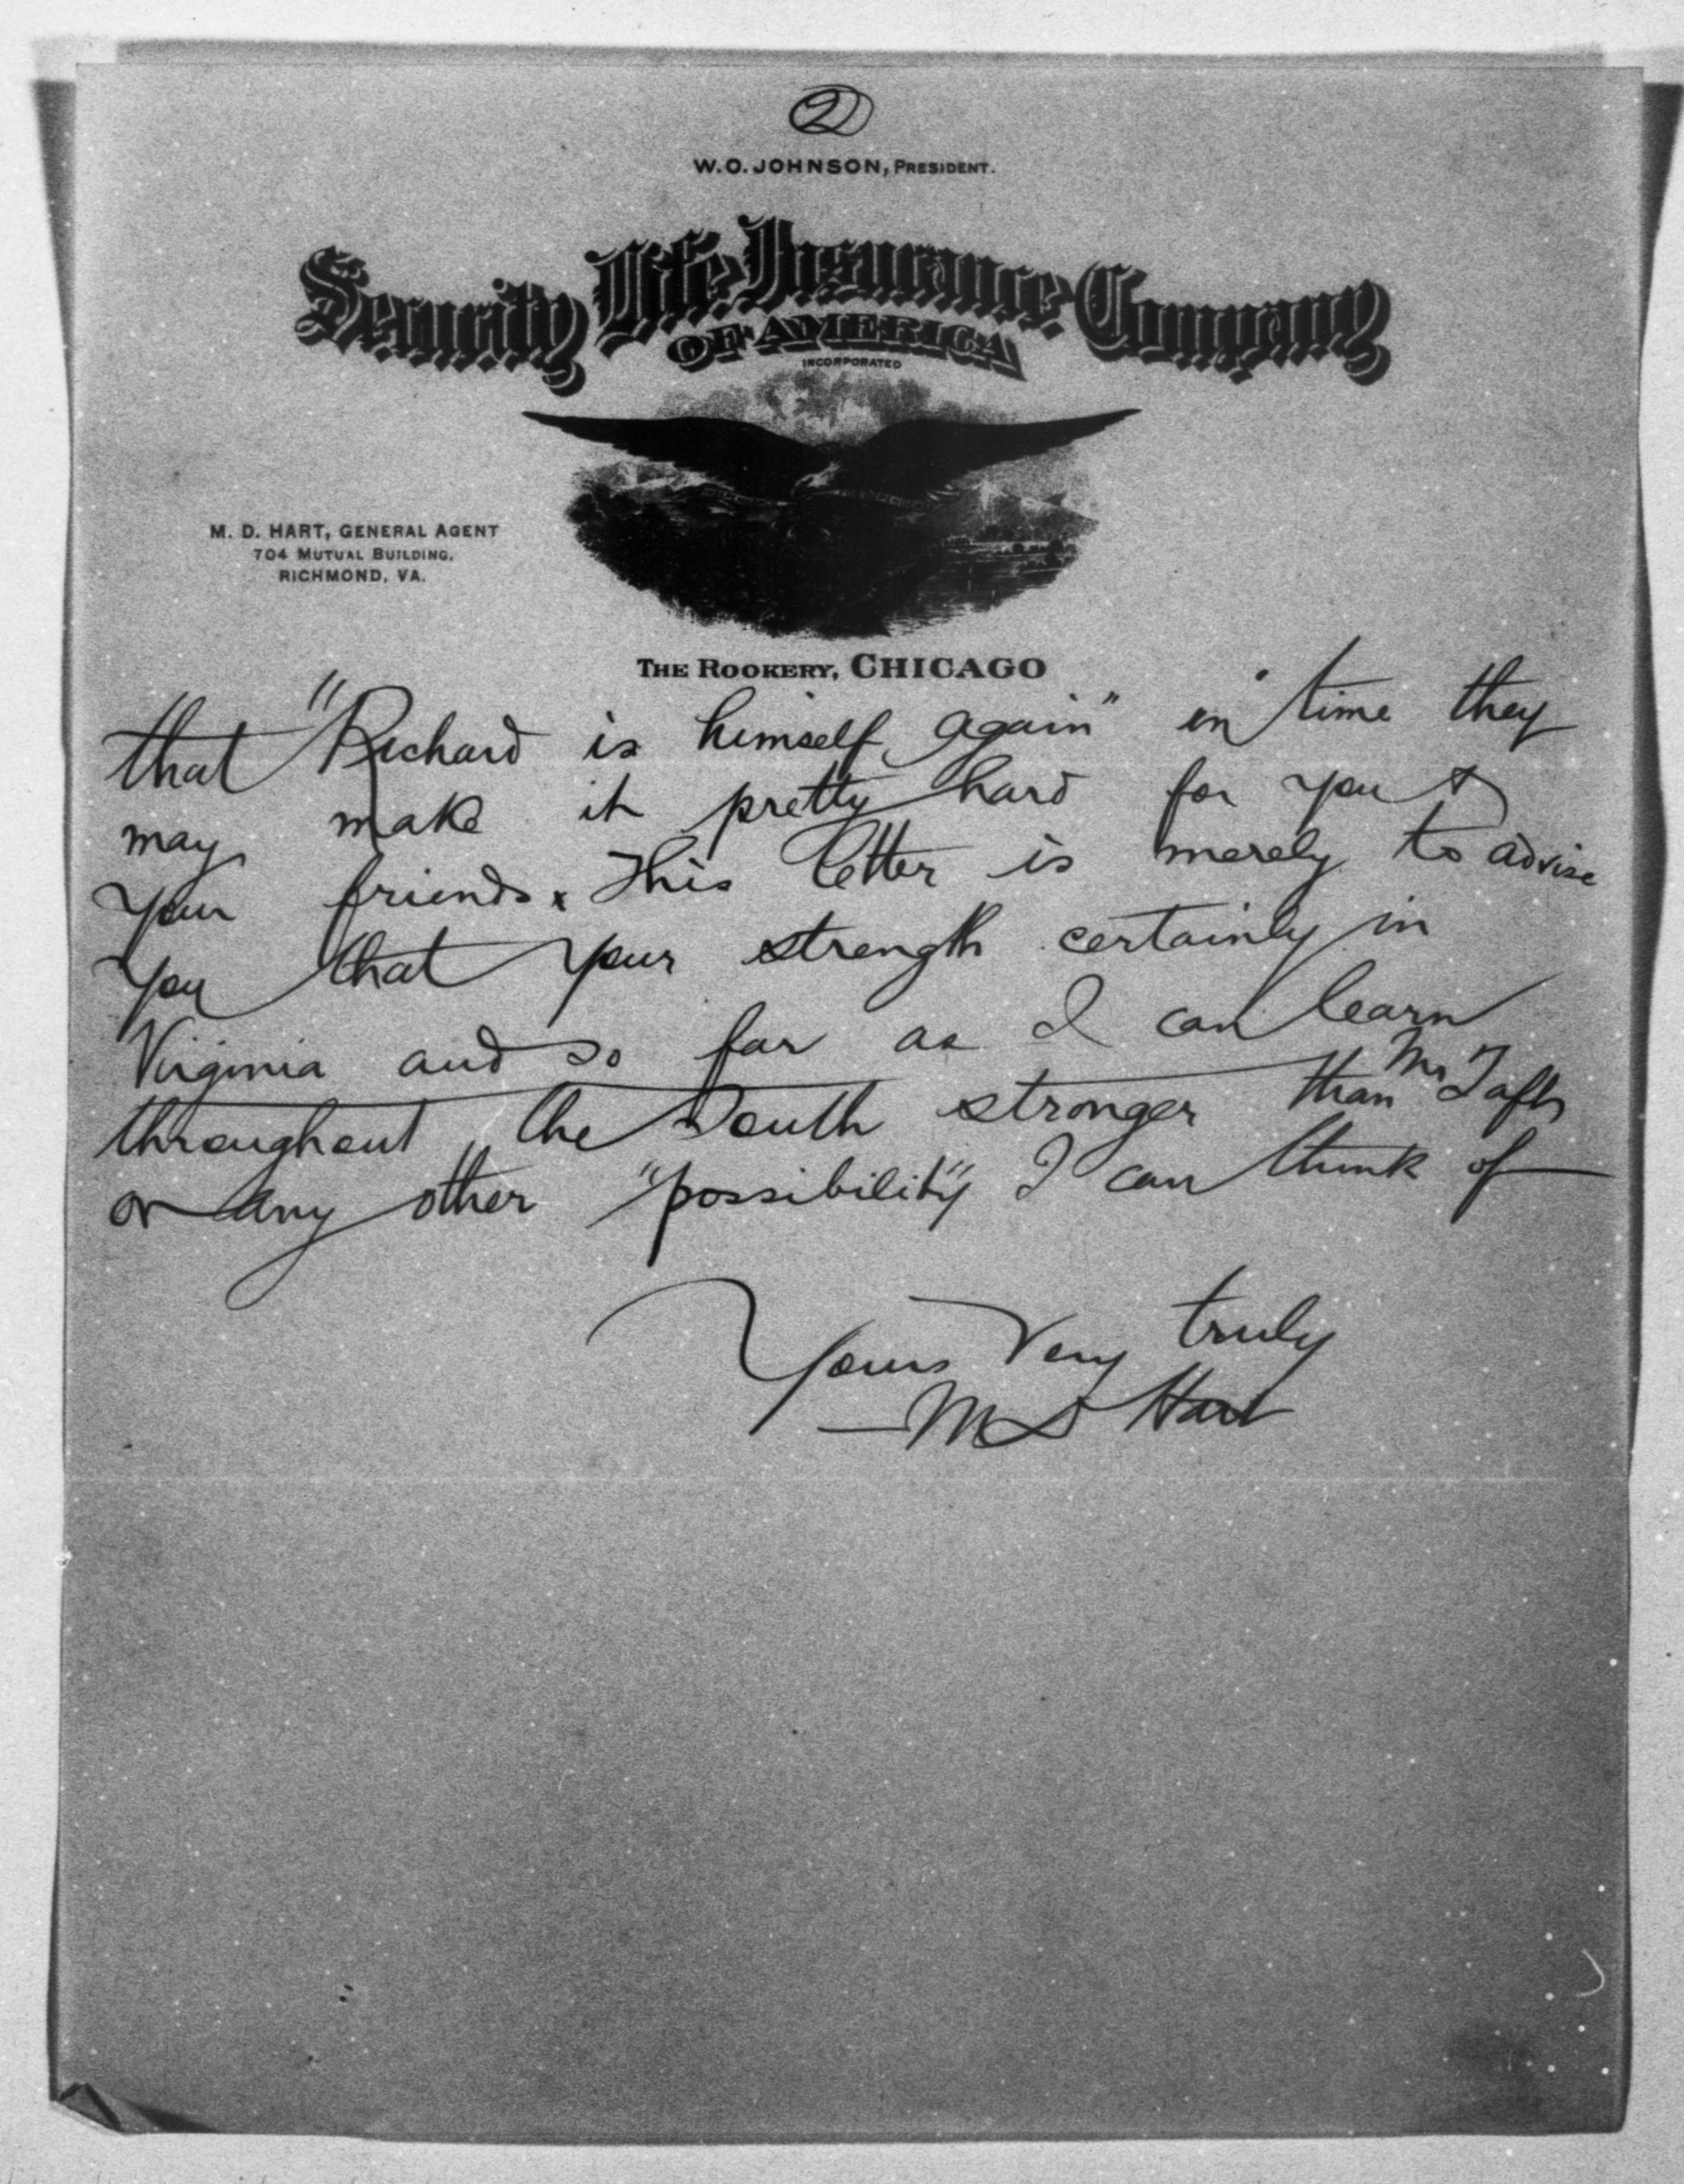 2
W.O. JOHNSON, PRESIDENT.
Security Life Insurance Company
OF AMERICA
INCORPORATED
M. D. HART, GENERAL AGENT
704 MUTUAL BUILDING,
RICHMOND, VA.
THE ROOKERY, CHICAGO
that "Richard is himself again" in time they
may make it pretty hard for you &
your friends. This letter is merely to advise
you that your strength certainly in
Virginia and so far as I can learn
throughout the South stronger than Mr Tafts
or any other "possibility" I can think of
Yours Very truly
M D Hart